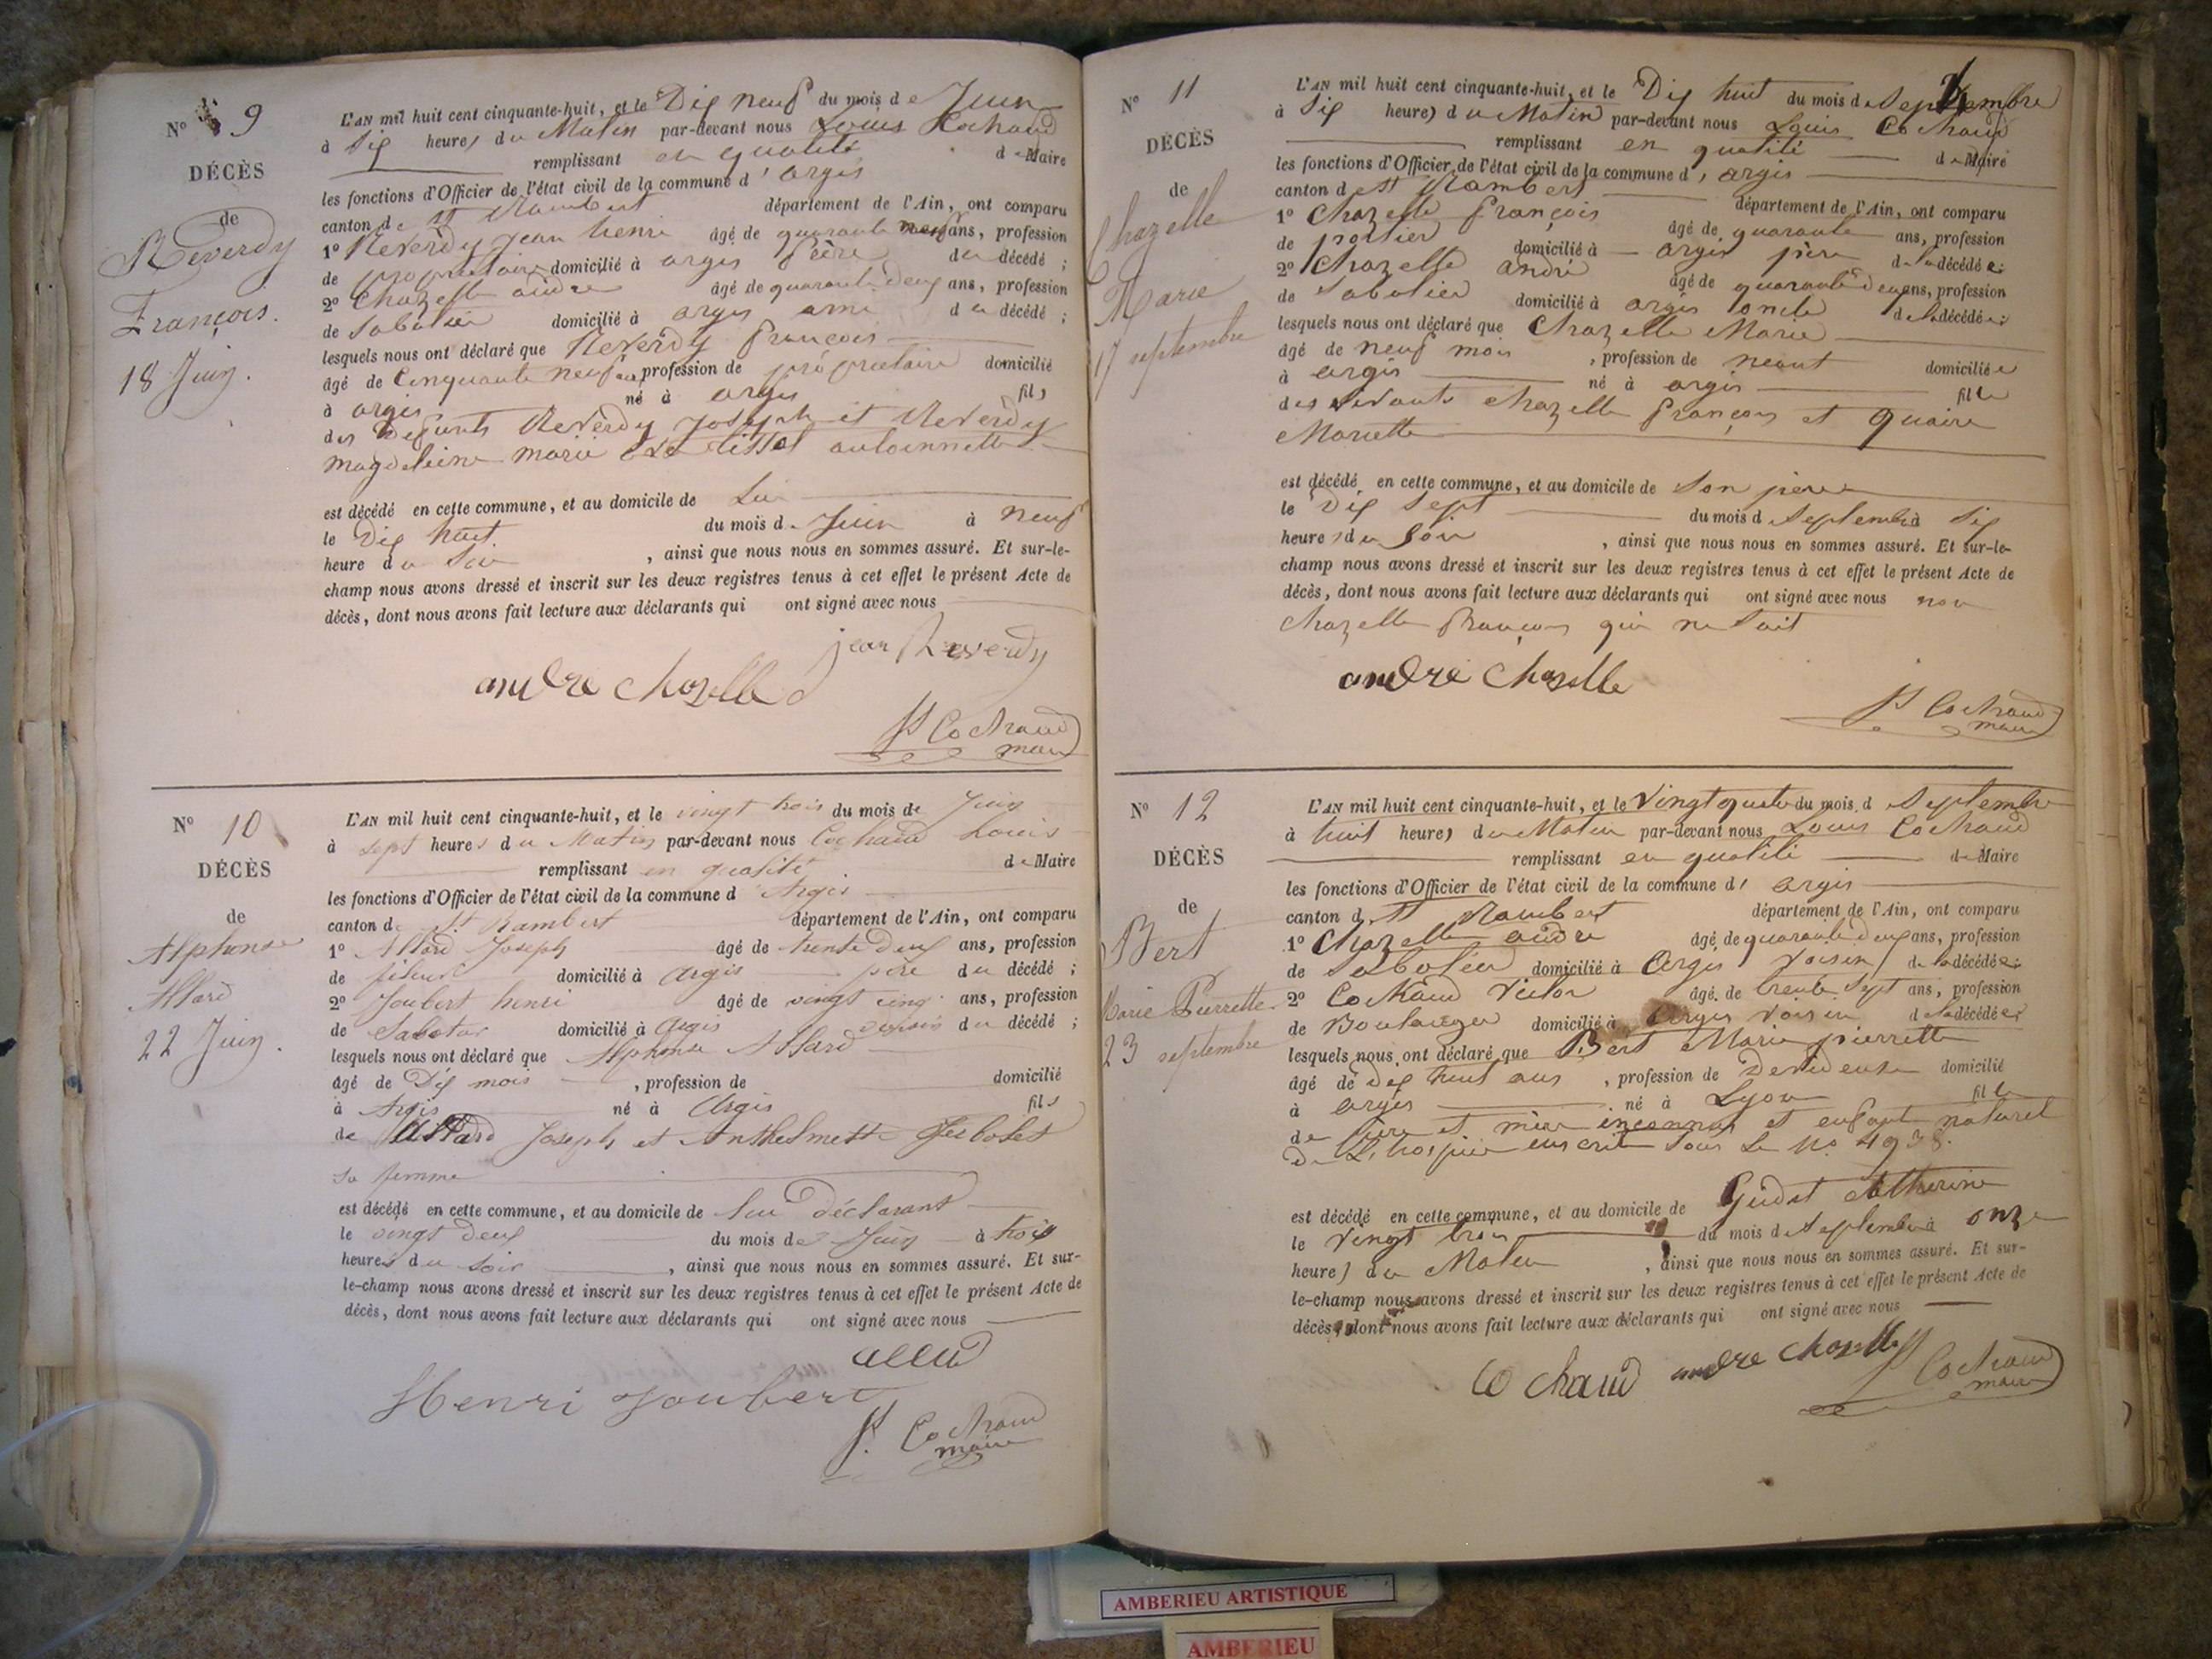 Nº 9
DÉCÈS
de
Reverdy
François.
18 Juin.
L'AN mil huit cent cinquante-huit, et le Dix neuf du mois de Juin
à Six heures du Matin par-devant nous Louis Cochaud
remplissant en qualité de Maire
les fonctions d'Officier de l'état civil de la commune d'argis
canton de St Rambert département de l'Ain, ont comparu
1º Reverdy jean henri âgé de quarante neuf ans, profession
de propriétaire domicilié à argis frère du décédé ;
2º Chazelle andré âgé de quarante deux ans, profession
de Sabotier domicilié à argis ami du décédé ;
lesquels nous ont déclaré que Reverdy françois
âgé de Cinquante neuf ans profession de propriétaire domicilié
à argis né à argis fils
des Defunts Reverdy Joseph et Reverdy
magdeleine marie antoinnette
est décédé en cette commune, et au domicile de Lui
le Dix huit du mois de Juin à neuf
heure du Soir , ainsi que nous nous en sommes assuré. Et sur-le-
champ nous avons dressé et inscrit sur les deux registres tenus à cet effet le présent Acte de
décès, dont nous avons fait lecture aux déclarants qui ont signé avec nous
jean Reverdy
andre chazelle
Cochaud
maire
Nº 10
DÉCÈS
de
Alphonse
Allard
22 Juin.
L'AN mil huit cent cinquante-huit, et le vingt trois du mois de Juin
à sept heures du Matin par-devant nous Cochaud Louis
remplissant en qualité de Maire
les fonctions d'Officier de l'état civil de la commune d'Argis
canton de St. Rambert département de l'Ain, ont comparu
1º Allard Joseph âgé de trente deux ans, profession
de fileur domicilié à Argis père du décédé ;
2º Joubert henri âgé de vingt cinq ans, profession
de Sabotier domicilié à Argis voisin du décédé ;
lesquels nous ont déclaré que Alphonse Allard
âgé de Dix mois , profession de domicilié
à Argis né à Argis fils
de Allard Joseph et Anthelmette
sa femme
est décédé en cette commune, et au domicile de Son déclarant
le vingt deux du mois de Juin à trois
heures du soir , ainsi que nous nous en sommes assuré. Et sur-
le-champ nous avons dressé et inscrit sur les deux registres tenus à cet effet le présent Acte de
décès, dont nous avons fait lecture aux déclarants qui ont signé avec nous
Henri Joubert
Cochaud
maire
Nº 11
DÉCÈS
de
Chazelle
Marie
17 septembre
L'AN mil huit cent cinquante-huit, et le Dix huit du mois de Septembre
à Six heures du Matin par-devant nous Louis Cochaud
remplissant en qualité de Maire
les fonctions d'Officier de l'état civil de la commune d'argis
canton de St Rambert département de l'Ain, ont comparu
1º Chazelle françois âgé de quarante ans, profession
de domicilié à argis père de la décédée ;
2º Chazelle andré âgé de quarante deux ans, profession
de Sabotier domicilié à argis oncle de la décédée ;
lesquels nous ont déclaré que Chazelle Marie
âgé de neuf mois , profession de neant domiciliée
à argis né à argis fille
des vivants chazelle françois et quaire
Mariette
est décédé en cette commune, et au domicile de son pere
le Dix Sept du mois de Septembre à Six
heures du Soir , ainsi que nous nous en sommes assuré. Et sur-le-
champ nous avons dressé et inscrit sur les deux registres tenus à cet effet le présent Acte de
décès, dont nous avons fait lecture aux déclarants qui ont signé avec nous non
chazelle françois qui ne Sait
andre chazelle
Cochaud
maire
Nº 12
DÉCÈS
de
Bert
Marie Pierrette
23 septembre
L'AN mil huit cent cinquante-huit, et le Vingt quatre du mois de Septembre
à huit heures du Matin par-devant nous Louis Cochaud
remplissant en qualité de Maire
les fonctions d'Officier de l'état civil de la commune d'argis
canton de St Rambert département de l'Ain, ont comparu
1º Chazelle andré âgé de quarante deux ans, profession
de Sabotier domicilié à Argis voisin de la décédée ;
2º Cochaud Victor âgé de trente Sept ans, profession
de Boulanger domicilié à Argis voisin de la décédée
lesquels nous ont déclaré que Bert Marie pierrette
âgé de dix huit ans , profession de Devideuse domicilié
à argis né à Lyon fille
de père et mère inconnus et enfant naturel
de L'hospice inscrit Sous Le No 4938.
est décédé en cette commune, et au domicile de Gudet Catherine
le Vingt trois du mois de Septembre à onze
heures du Matin , ainsi que nous nous en sommes assuré. Et sur-
le-champ nous avons dressé et inscrit sur les deux registres tenus à cet effet le présent Acte de
décès, dont nous avons fait lecture aux déclarants qui ont signé avec nous
Cochaud andre chazelle
Cochaud
maire
AMBERIEU ARTISTIQUE
AMBERIEU